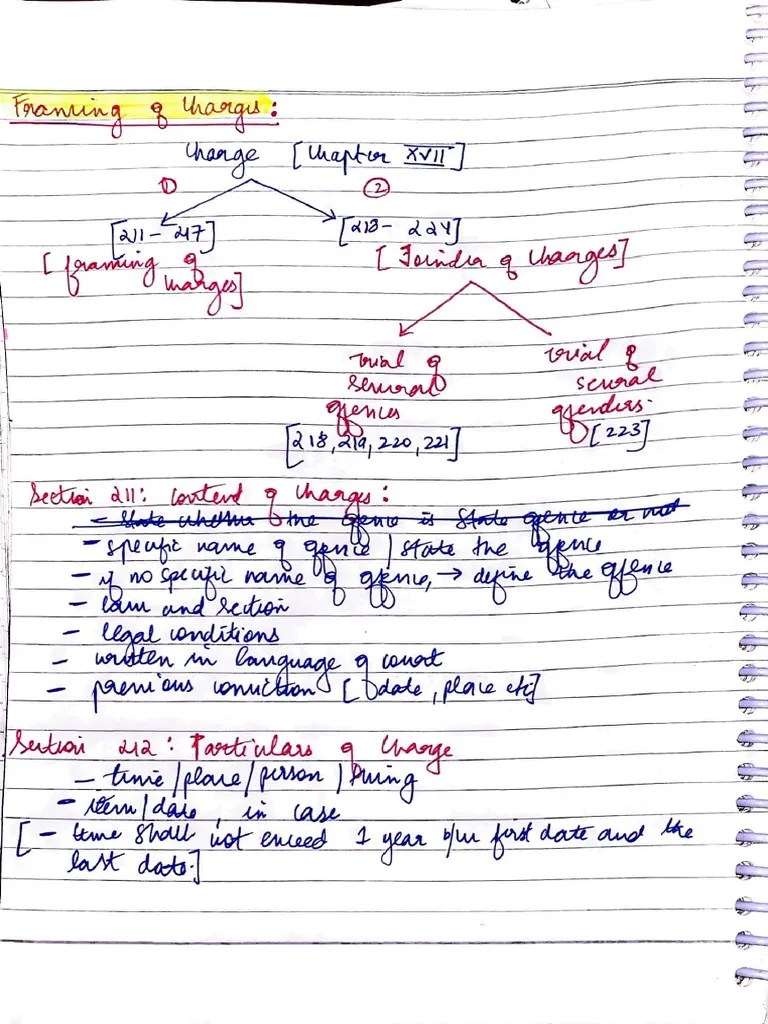 Framing of Charges:
Charge [Chapter XVII]
① ②
[211 - 217] [218 - 224]
[framing of charges] [Joinder of Charges]
trial of several offences trial of several offenders.
[218, 219, 220, 221] [223]
Section 211: Content of Charges:
- State whether the offence is State offence or not
- specific name of offence / state the offence
- if no specific name of offence, → define the offence
- law and section
- legal conditions
- written in language of court
- previous conviction [date, place etc]
Section 212: Particulars of Charge
- time/place/person/thing
- item/date, in case
[- time shall not exceed 1 year b/w first date and the
last date.]